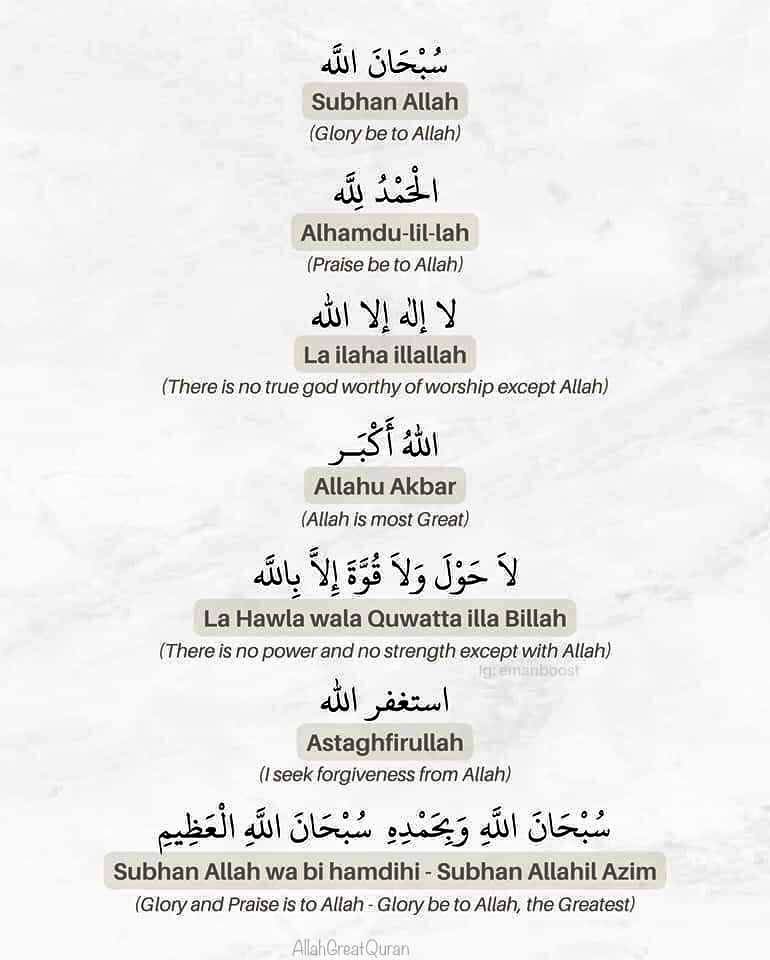 سُبْحَانَ اللَّه
Subhan Allah
(Glory be to Allah)
الْحَمْدُ لِلَّه
Alhamdu-lil-lah
(Praise be to Allah)
لا إله إلا الله
La ilaha illallah
(There is no true god worthy of worship except Allah)
اللهُ أَكْبَــر
Allahu Akbar
(Allah is most Great)
لاَ حَوْلَ وَلاَ قُوَّةَ إِلاَّ بِاللَّه
La Hawla wala Quwatta illa Billah
(There is no power and no strength except with Allah)
Ig: emanboost
استغفر الله
Astaghfirullah
(I seek forgiveness from Allah)
سُبْحَانَ اللَّهِ وَبِحَمْدِهِ سُبْحَانَ اللَّهِ الْعَظِيمِ
Subhan Allah wa bi hamdihi - Subhan Allahil Azim
(Glory and Praise is to Allah - Glory be to Allah, the Greatest)
AllahGreatQuran